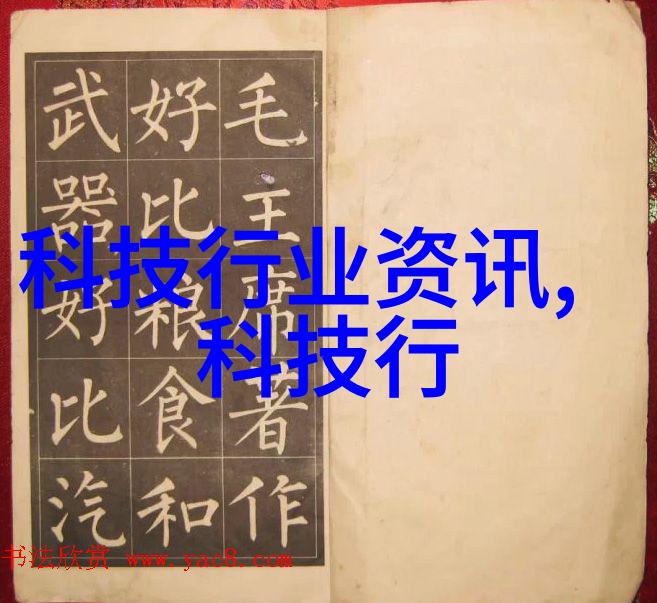 毛主席著作
好比粮食和
武器好比汽
科技行业资讯,
科技行
书法欣赏 www.yac8.com